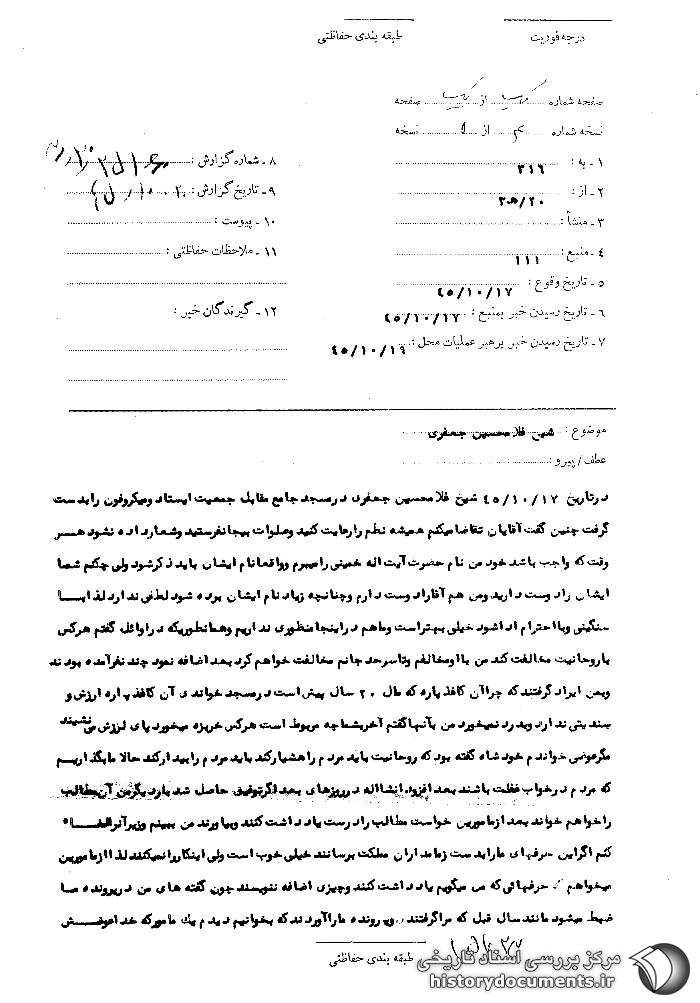 درجه فوریت
طبقه بندی حفاظتی
صفحه شماره یک از یک صفحه
نسخه شماره از نسخه
۱ـ به : ۳۱۶
۲ـ از : ۲۰/ه۳
۳ـ منشأ :
۴ـ منبع : ۱۱۱
۵ـ تاریخ وقوع : ۴۵/۱۰/۱۷
۶ـ تاریخ رسیدن خبر بمنبع : ۴۵/۱۰/۱۷
۷ـ تاریخ رسیدن خبر برهبر عملیات محل : ۴۵/۱۰/۱۹
۸ـ شماره گزارش :
۹ـ تاریخ گزارش :
۱۰ـ پیوست :
۱۱ـ ملاحظات حفاظتی :
۱۲ـ گیرندگان خبر :
موضوع : شیخ غلامحسین جعفری
عطف/پیرو :
درتاریخ ۴۵/۱۰/۱۷ شیخ غلامحسین جعفری درمسجد جامع مقابل جمعیت ایستاد ومیکروفون رابدست
گرفت چنین گفت آقایان تقاضامیکنم همیشه نظم رارعایت کنید وصلوات بیجانفرستید وشعارداده نشود هسر
وقت که واجب باشد خود من نام حضرت آیت اله خمینی رامیبرم وواقعانام ایشان باید ذکرشود ولی چکنم شما
ایشان راد وست دارید ومن هم آقاراد وست دارم وچنانچه زیاد نام ایشان برده شود لطفی ندارد لذابسا
سنگینی وبااحترام اداشود خیلی بهتراست وماهم دراینجا منظوری نداریم وهمانطوریکه دراوائل گفتم هرکس
باروحانیت مخالفت کند من بااومخالفم وتاسرحد جانم مخالفت خواهم کرد بعد اضافه نمود چند نفرآمده بودند
وبمن ایراد گرفتندکه چراآن کاغذ پاره که مال ۲۰ سال پیش است درمسجد خواندی آن کاغذ پاره ارزش و
سندیتی ندارد وبدرد نمیخورد من بآنهاگفتم آخربشماچه مربوط است هرکس خربزه میخورد پای لرزش می نشیند
مگرعوضی خواندم خود شاه گفته بود که روحانیت باید مردم راهشیارکند باید مردم رابیدارکند حالا مابگذاریم
که مردم درخواب غفلت باشند بعد افزود انشااله درروزهای بعد اگرتوفیق حاصل شد باردیگرمن آن مطالب
راخواهم خواند بعد ازمامورین خواست مطالب رادرست یادداشت کنند وبیاورند من ببینم وزیرآنرا
کنم اگراین حرفهای مارابدست زمامداران مملکت برسانند خیلی خوب است ولی اینکاررانمیکنند لذا ازمامورین
میخواهم که حرفهائی که می میگویم یادداشت کنند وچیزی اضافه ننویسند چون گفته های من درپرونده مسا
ضبط میشود مانند سال قبل که مراگرفتند وپرونده ماراآوردند که بخوانیم دیدم یک مامورکه خداعوضش
طبقه بندی حفاظتی
مرکز بررسی اسناد تاریخی
historydocuments.ir